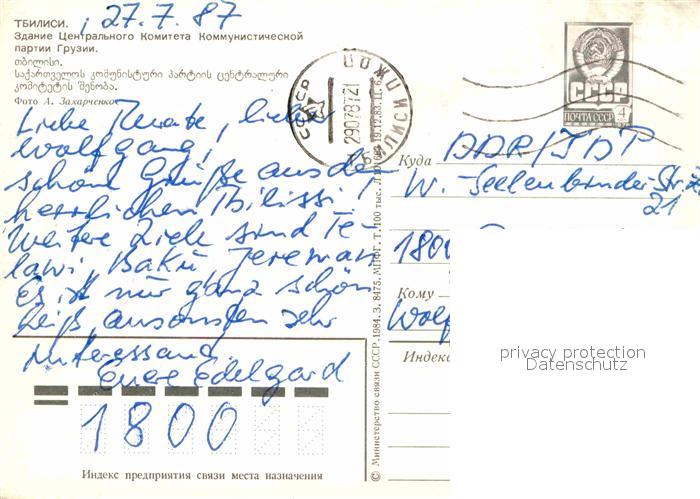 ТБИЛИСИ. , 27.7.87
Здание Центрального Комитета Коммунистической
партии Грузии.
თბილისი.
საქართველოს კომუნისტური პარტიის ცენტრალური
კომიტეტის შენობა.
Фото А. Захарченко
Liebe Renate, lieber
Wolfgang,
schöne Grüße aus dem
herrlichen Tbilissi!
Weitere Ziele sind Te-
lawi, Baku, Jerewan
Es ist nur ganz schön
heiß, ansonsten sehr
interessant.
Eure Edelgard
1800
Индекс предприятия связи места назначения
© Министерство связи СССР, 1984. З. 8475. МПФГ. Т. 100 тыс.
СССР
29078721
СССР
ПОЧТА СССР 4
Куда DDR/ГДР
W. Seelenbinder-Str.
21
1800
Кому
Wolf
Индекс
privacy protection
Datenschutz